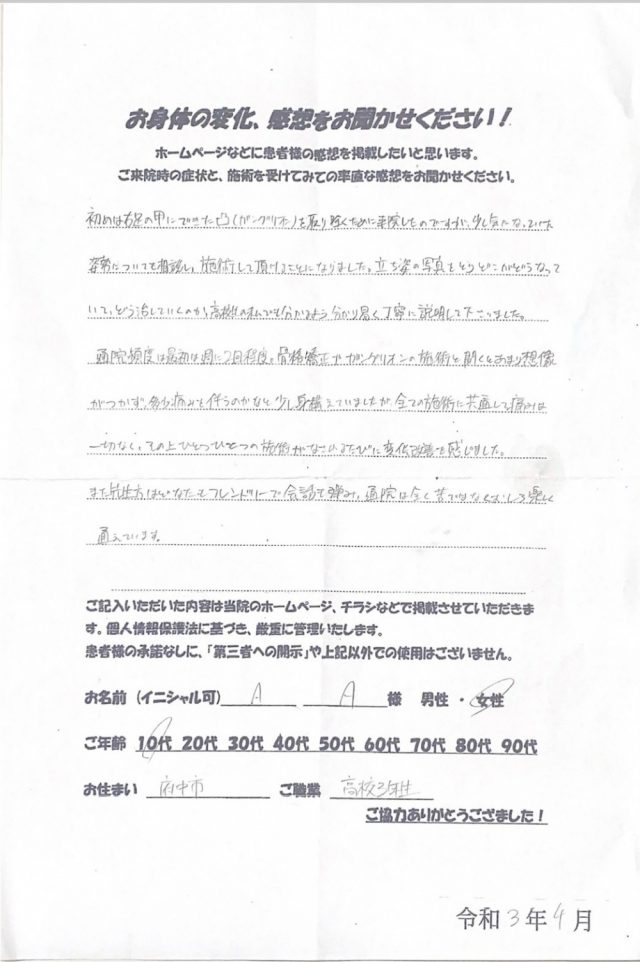 お身体の変化、感想をお聞かせください！
ホームページなどに患者様の感想を掲載したいと思います。
ご来院時の症状と、施術を受けてみての率直な感想をお聞かせください。
初めは右足の甲にできた凸(ガングリオン)を取り除くために来院したのですが、少し気になっていた
姿勢についても相談し、施術して頂けることになりました。立ち姿の写真をとりどこがどうなって
いて、どう治していくのか、高校生の私でも分かるよう分かり易く丁寧に説明して下さいました。
通院頻度は最初は週に2回程度。骨格矯正やガングリオンの施術と聞くとあまり想像
がつかず、多少痛みを伴うのかなと少し身構えていましたが、全ての施術に共通して痛みは
一切なく、その上ひとつひとつの施術がなされるたびに変化改善を感じました。
また先生方はどなたもフレンドリーで会話も弾み、通院は全く苦ではなくむしろ楽しく
通えています。
ご記入いただいた内容は当院のホームページ、チラシなどで掲載させていただきま
す。個人情報保護法に基づき、厳重に管理いたします。
患者様の承諾なしに、「第三者への開示」や上記以外での使用はございません。
お名前（イニシャル可） A A 様 男性・女性
ご年齢 10代 20代 30代 40代 50代 60代 70代 80代 90代
お住まい 府中市 ご職業 高校3年生
ご協力ありがとうござました！
令和3年4月